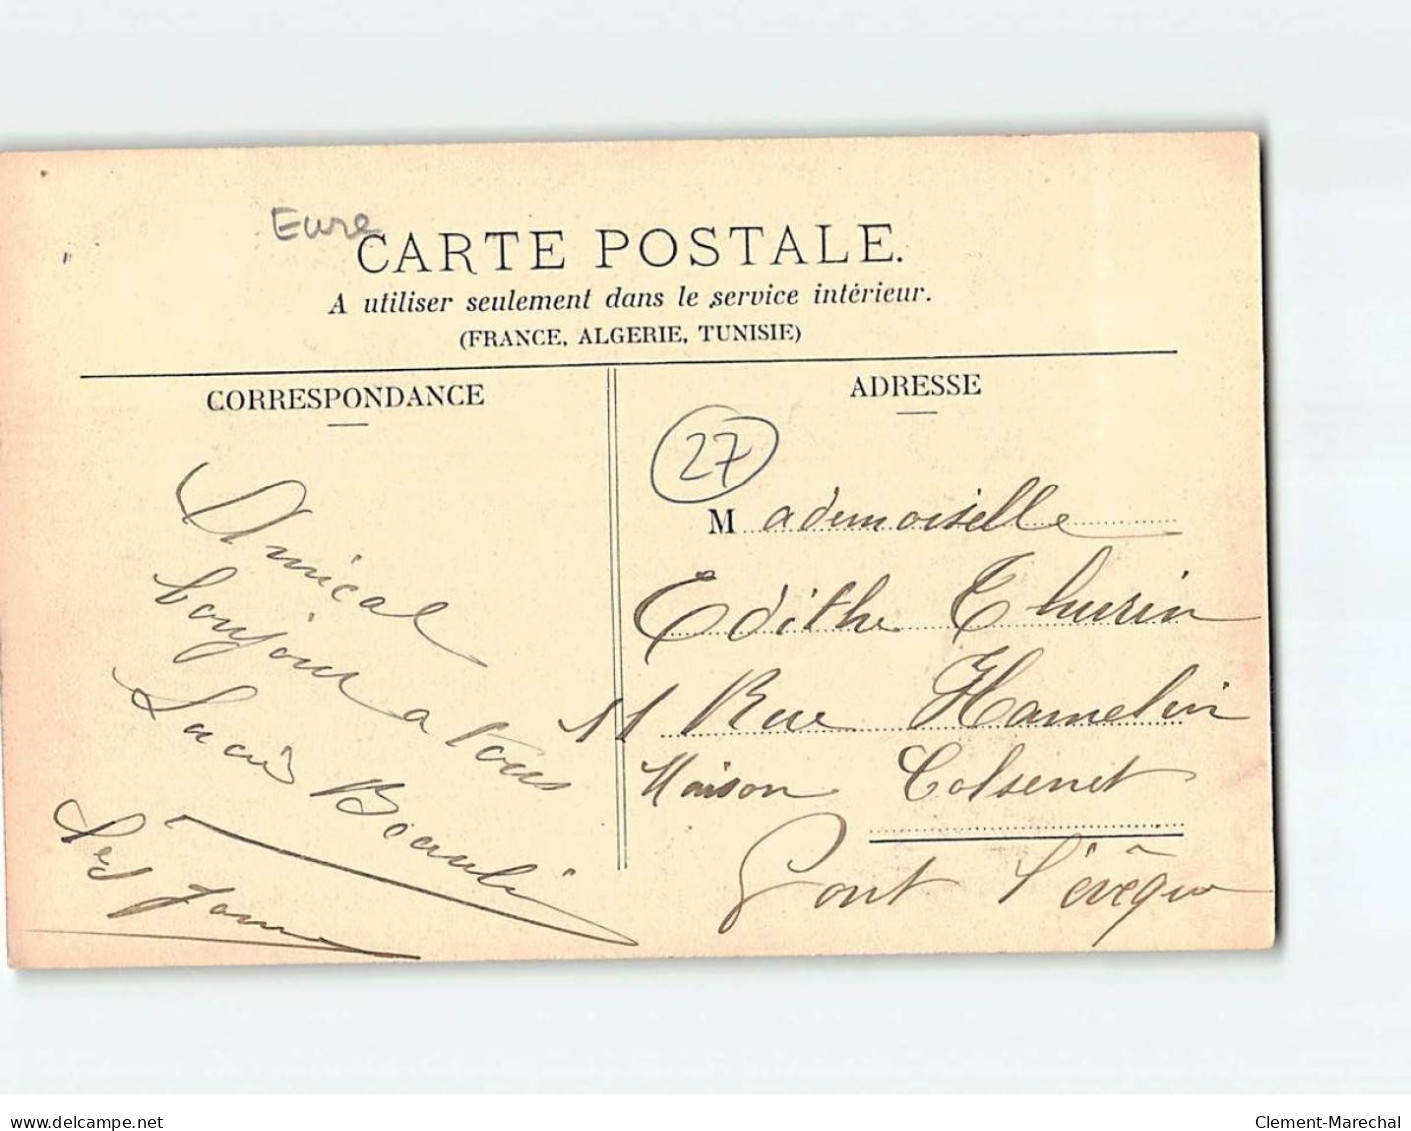 Eure
CARTE POSTALE.
A utiliser seulement dans le service intérieur.
(FRANCE, ALGERIE, TUNISIE)
CORRESPONDANCE
Amical
bonjour a tous
ADRESSE
27
Mademoiselle
Edithe Thurin
11 Rue Hamelin
Maison Colsenet
Pont l'évêque
www.delcampe.net
Clement-Marechal